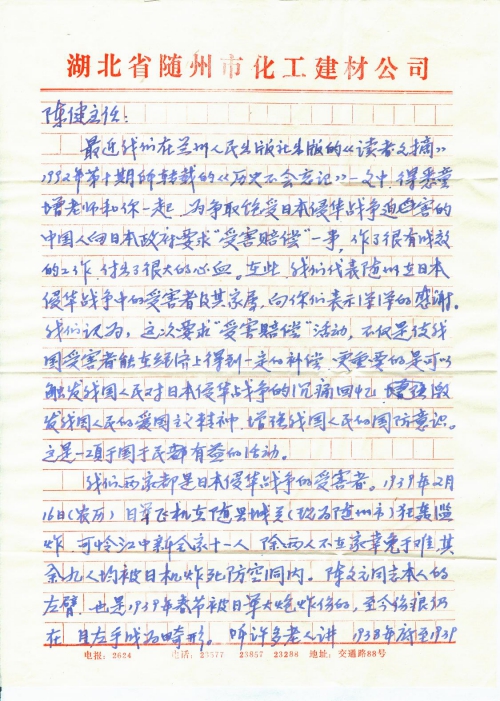 湖北省随州市化工建材公司
陈健主任：
最近我们在兰州人民出版社出版的《读者文摘》
1992年第十期所转载的《历史不会忘记》一文中，得悉童
增老师和你一起，为争取饱受日本侵华战争迫害的
中国人向日本政府要求“受害赔偿”一事，作了很有成效
的工作，付出了很大的心血。在此，我们代表随州在日本
侵华战争中的受害者及其家属，向你们表示深深的感谢。
我们认为，这次要求“受害赔偿”活动，不仅是使我
国受害者能在经济上得到一定的补偿，更重要的是可以
触发我国人民对日本侵华战争的沉痛回忆，激
发我国人民的爱国主义精神，增强我国人民的国防意识。
这是一项于国于民都有益的活动。
我们两家都是日本侵华战争的受害者。1939年2月
16日（农历）日军飞机在随县城关（现为随州市）狂轰滥
炸，可怜江中新全家十一人，除两人不在家幸免于难，其
余九人均被日机炸死防空洞内。陈文元同志本人的
左臂，也是1939年春节被日军大炮炸伤的，至今伤痕仍
在，且左手成为畸形。听许多老人讲，1938年底至1939
电报：2624 电话：23577 23857 23288 地址：交通路88号